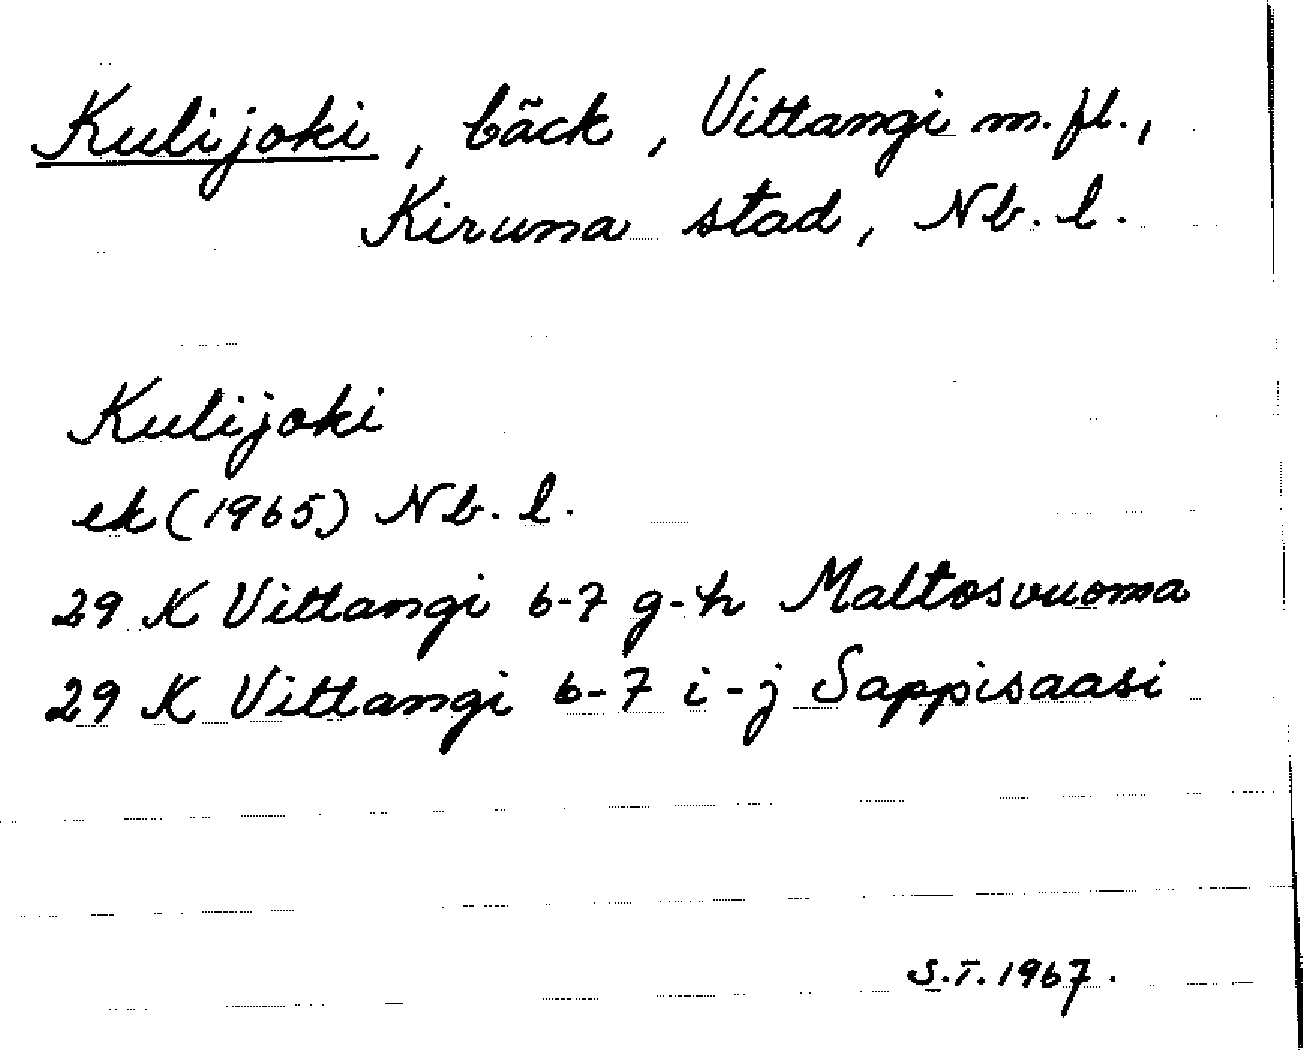 Kulijoki, bäck, Vittangi m. fl.,
Kiruna stad, Nb. l.
Kulijoki
ek (1965) Nb. l.
29 K Vittangi 6-7 g-h Maltosvuoma
29 K Vittangi 6-7 i-j Sappisaasi
S.T. 1967.